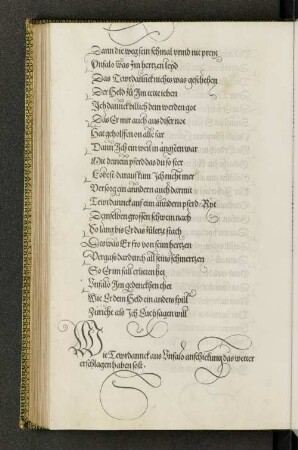 Dann die weg sein schmal vnnd nit preyt
Vnfalo was jm hertzen leyd
Das Tewrdannck nichts was geschehen
Der Held sü Im trite iehen
Ich danck billich dem werden got
Das Er mir auch aus diser not
Hat geholffen on alle far
Dann Ich ein weil in angsten war
Mit dewem pferd das du so seer
Kodest daraus kum Ich nicht mer
Versorg ein anndern auch darmit
Tewrdannck auf ein anndern pferd Ryt
Demselben grossen schwein nach
So lang bis Er das sületzt stach
Das was Er fro von sein hertzen
Vergass dardurch all sein schmertzen
So Er im fall erliten het
Vnfalo Im gedencken thet
Wie Er dem Held ein anders spill
Züricht als Ich Euch sagen will
Wie Tewrdannck aus Vnfalo anschickung das wetter
erschlagen haben solt.